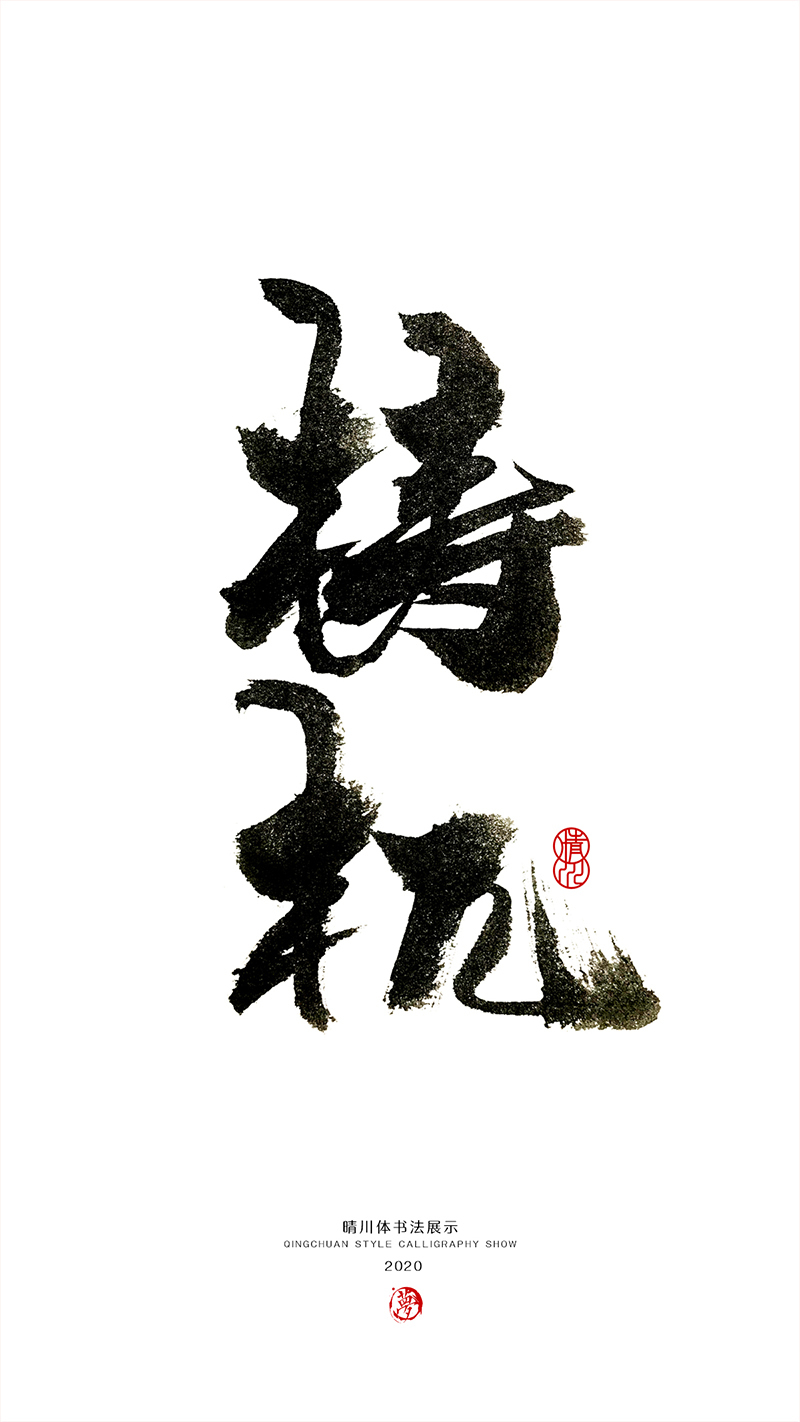 梼杌
晴川
晴川体书法展示
QINGCHUAN STYLE CALLIGRAPHY SHOW
2020
夢